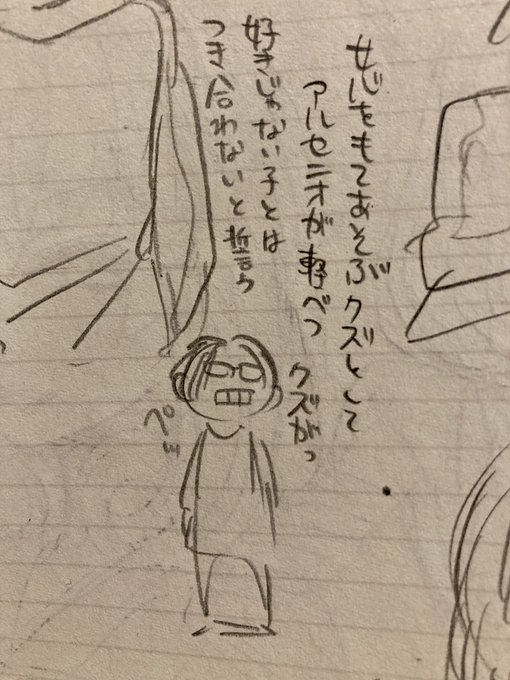 女心をもてあそぶクズとして
アルセニオが軽べつ
好きじゃない子とは
つき合わないと誓う
クズがっ
ペッ